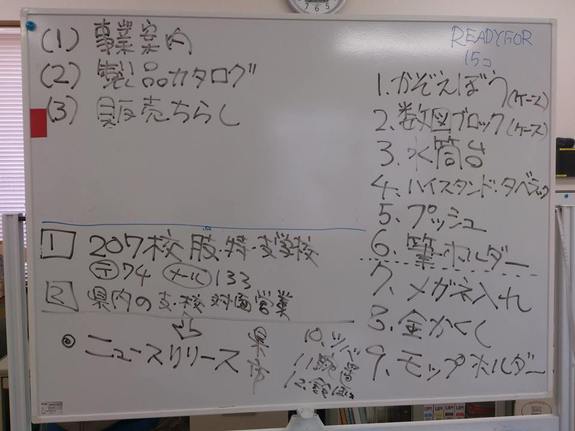 (1) 事業案内
(2) 製品カタログ
(3) 販売ちらし
1 207校 肢・特・支学校
〒74 メール 133
2 県内の支・校 対面営業
◎ ニュースリリース 県
READYFOR
15コ
1. かぞえぼう(ケース)
2. 数図ブロック(ケース)
3. 水筒台
4. ハイスタンド・タベラック
5. プッシュ
6. 筆・ホルダー
7. メガネ入れ
8. 金かくし
9. モップホルダー
10.
11.
12.